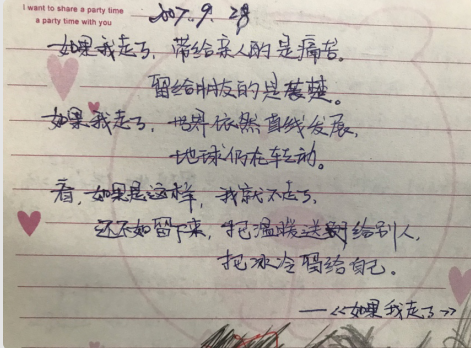 I want to share a party time
a party time with you
2007.9.29
如果我走了，带给亲人的是痛苦。
留给朋友的是哀楚。
如果我走了，世界依然直线发展，
地球仍在转动。
看，如果是这样，我就不走了，
还不如留下来，把温暖送给别人，
把冰冷留给自己。
——《如果我走了》